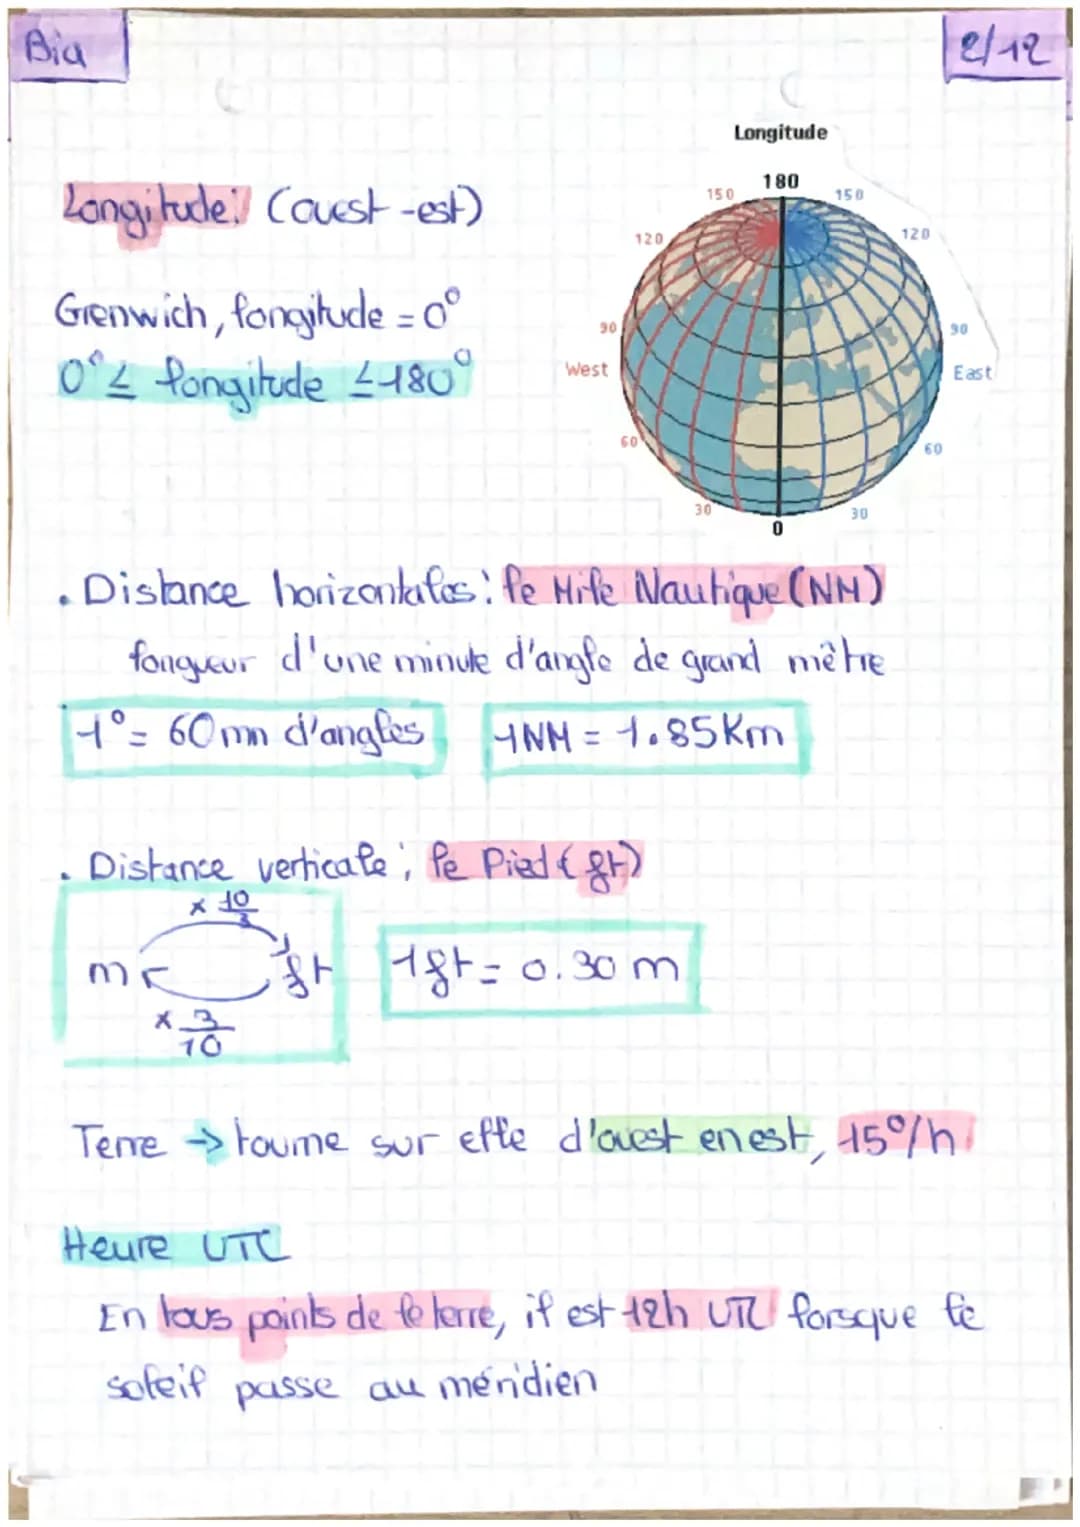 Bia
2/12
Longitude
180
150
150
120
120
90
90
West
East
60
60
30
30
0
Longitude: (ouest-est)
Grenwich, longitude = 0°
0° ≤ longitude ≤ 180°
. Distance horizontales : le Mile Nautique (NM)
longueur d'une minute d'angle de grand mètre
1° = 60 mn d'angles
1NM = 1.85Km
. Distance verticale ; le Pied (ft)
x 10/3
m ft
x 3/10
1ft = 0.30 m
Terre → tourne sur elle d'ouest en est, 15°/h
Heure UTC
En tous points de le terre, il est 12h UTC lorsque le
soleil passe au méridien